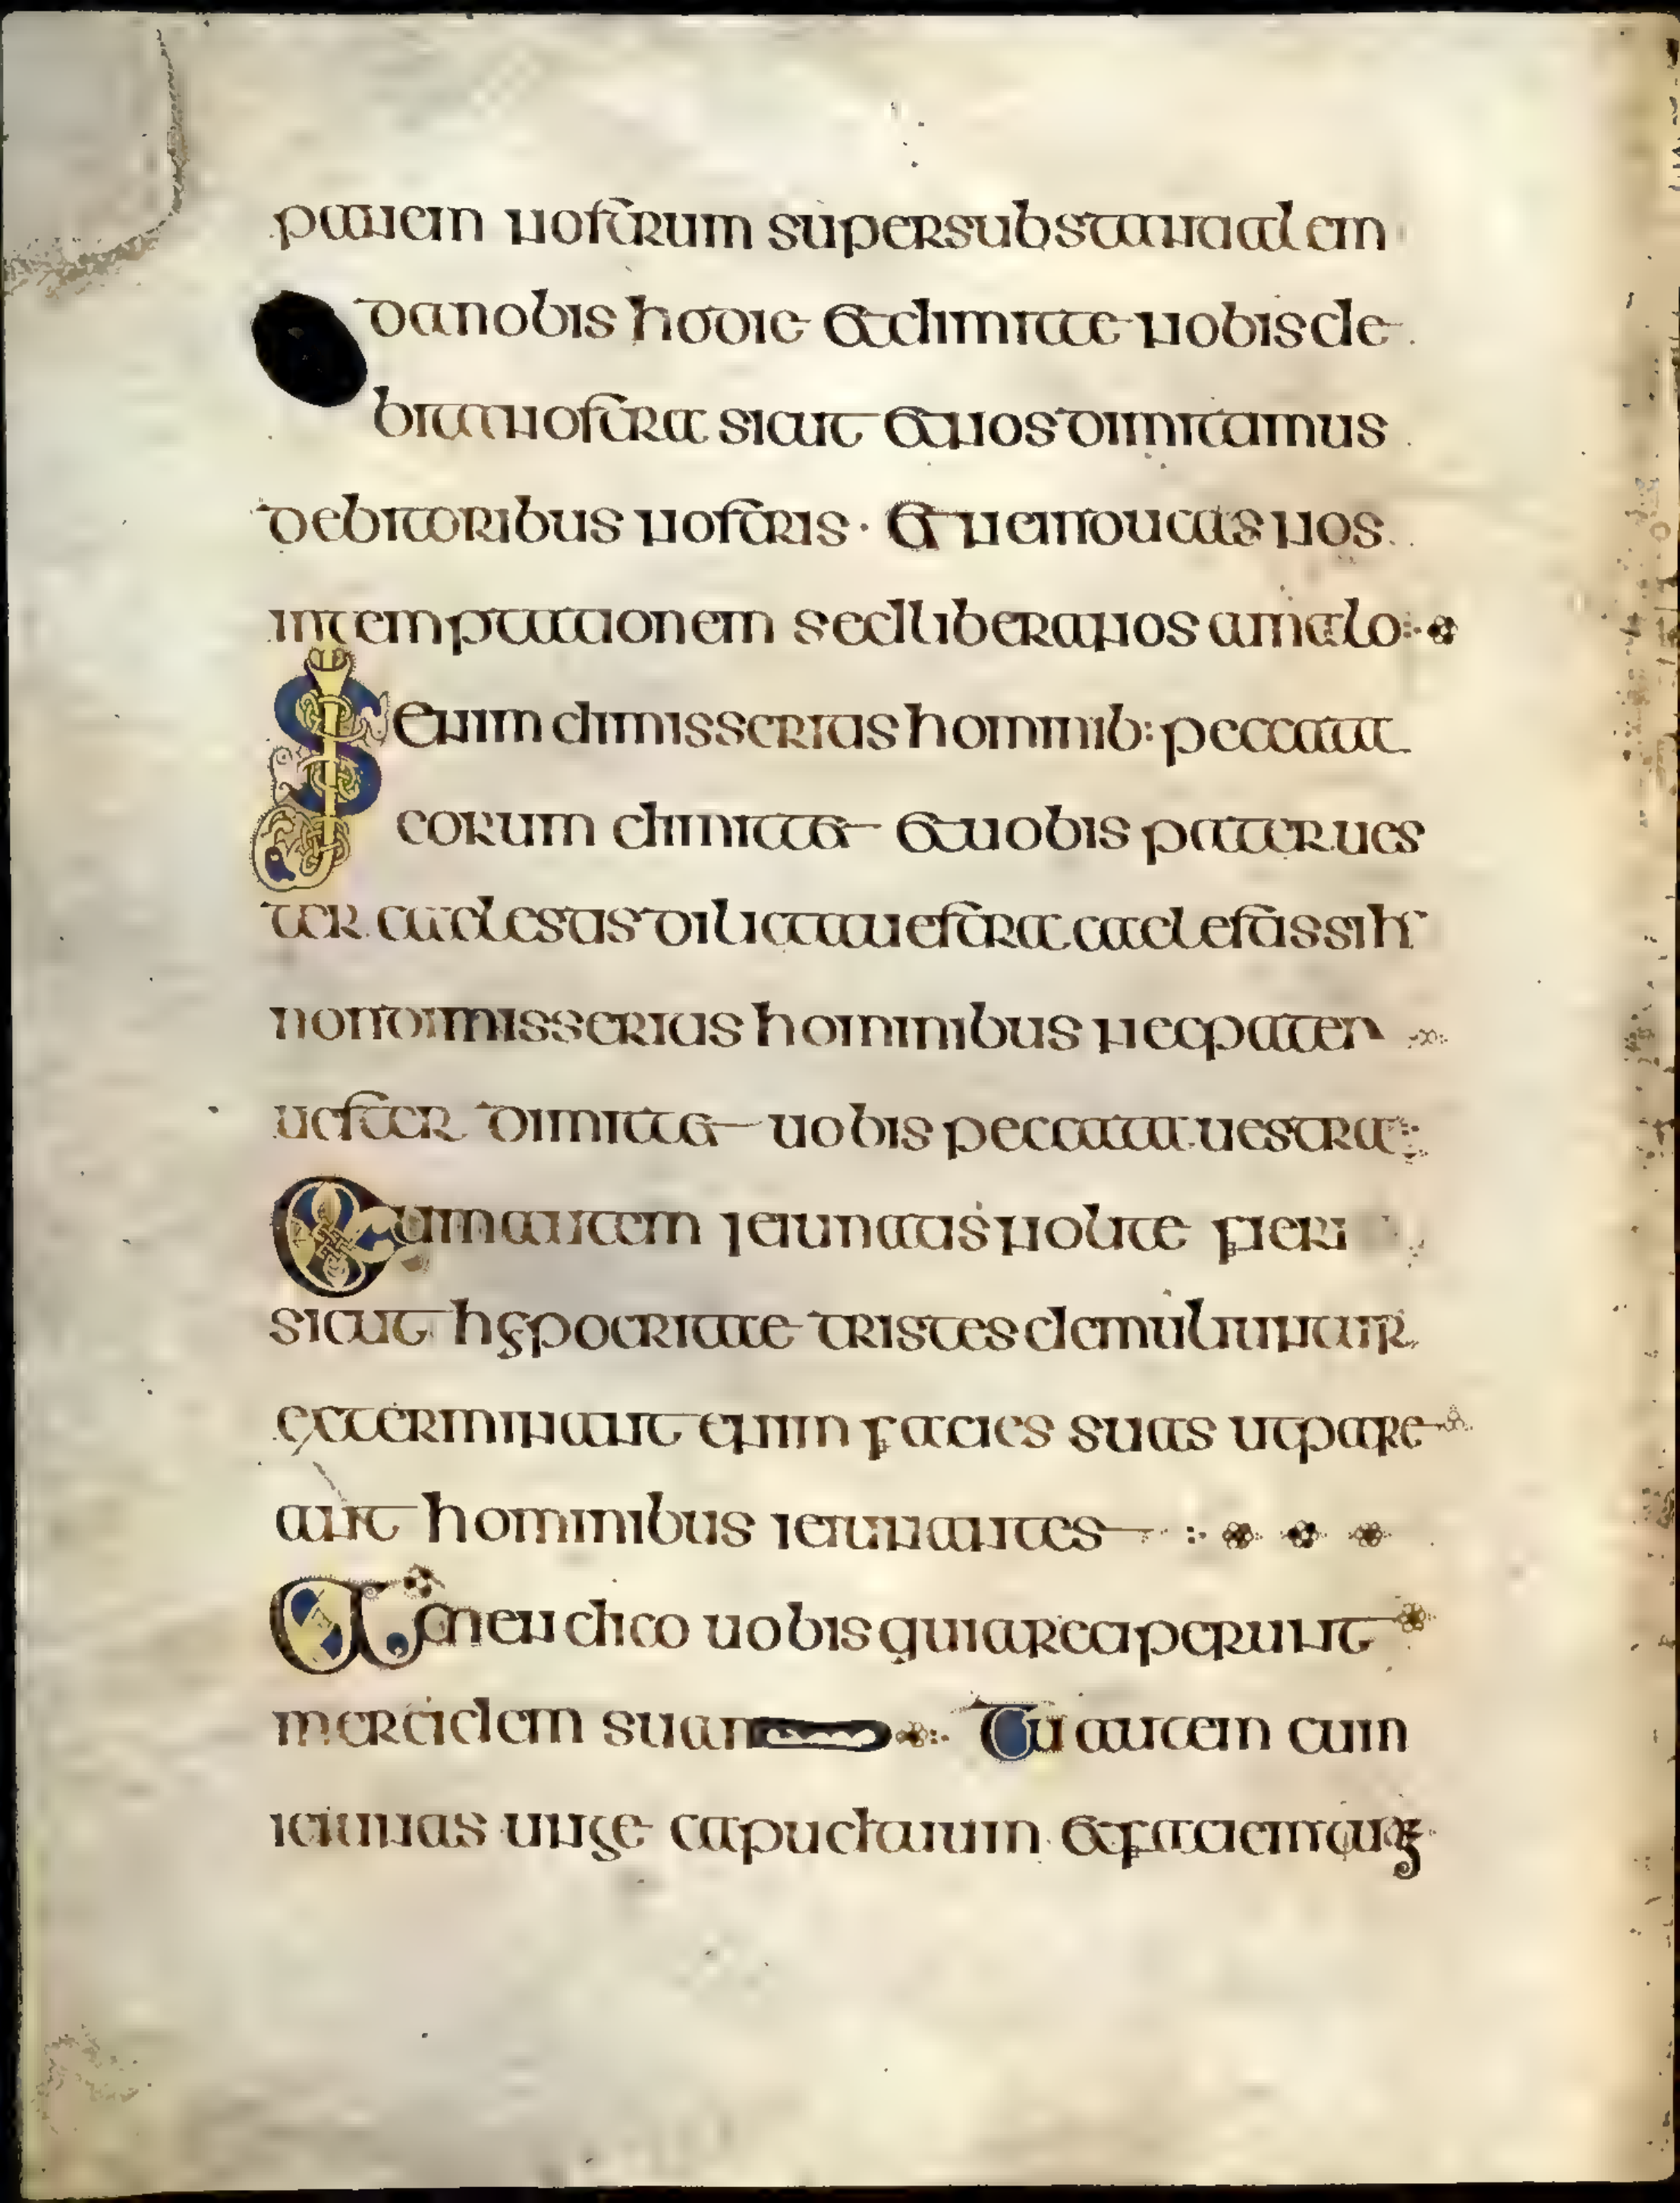 panem nostrum supersubstantialem
danobis hodie &dimitte nobisde
bitanostra sicut &nosdimitamus
debitoribus nostris · & neinducas nos
intemptationem sedliberanos amalo
Senim dimisseritis hominib: peccata
eorum dimitt& &uobis pater ues
ter caelestis dilicta uestra caelestis sih
nondimisseritis hominibus necpater
uester dimitt& uobis peccata uestra
Cumautem ieiunatis nolite fieri
sicut hypocritae tristes demuliuntur
exterminant enim facies suas utpare
ant hominibus ieiunantes
Amen dico uobis quiareciperunt
mercidem suam Tu autem cum
ieiunas unge caputtuum &faciemtuā